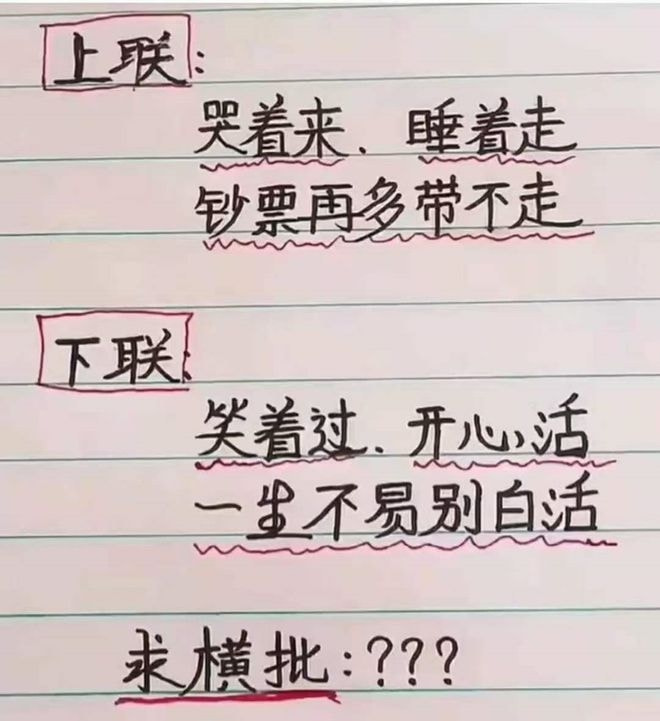 上联:
哭着来、睡着走
钞票再多带不走
下联:
笑着过、开心活
一生不易别白活
求横批:???